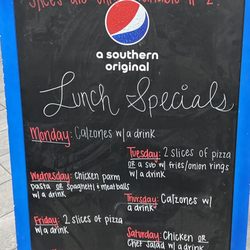 a southern
original
Lunch Specials
Monday: Calzones w/ a drink
Tuesday: 2 slices of pizza
OR a sub w/ fries/onion rings
w/ a drink
Wednesday: chicken parm
pasta OR spaghetti & meatballs
w/ a drink
Thursday: Calzones w/
a drink
Friday: 2 slices of pizza
w/ a drink
Saturday: Chicken OR
Chef Salad w/ a drink